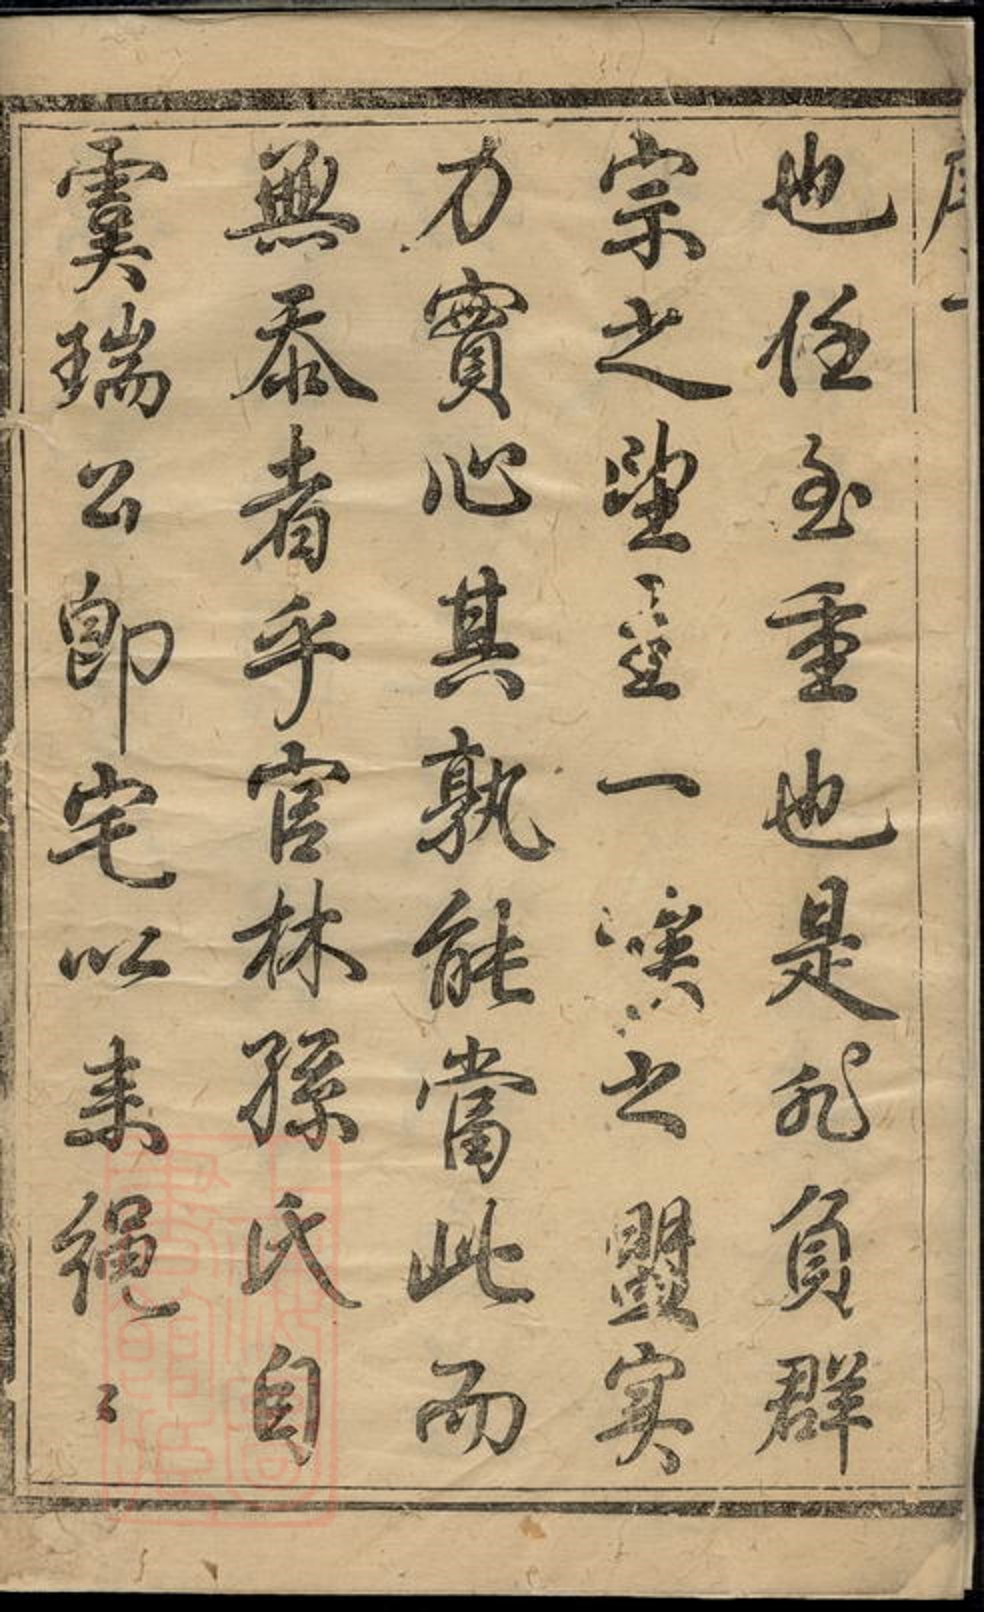 序一
也任至重也是非負群
宗之望一之盟实
力實心其孰能當此而
無忝者乎官林孫氏自
虞瑞公卽宅以来繩〻